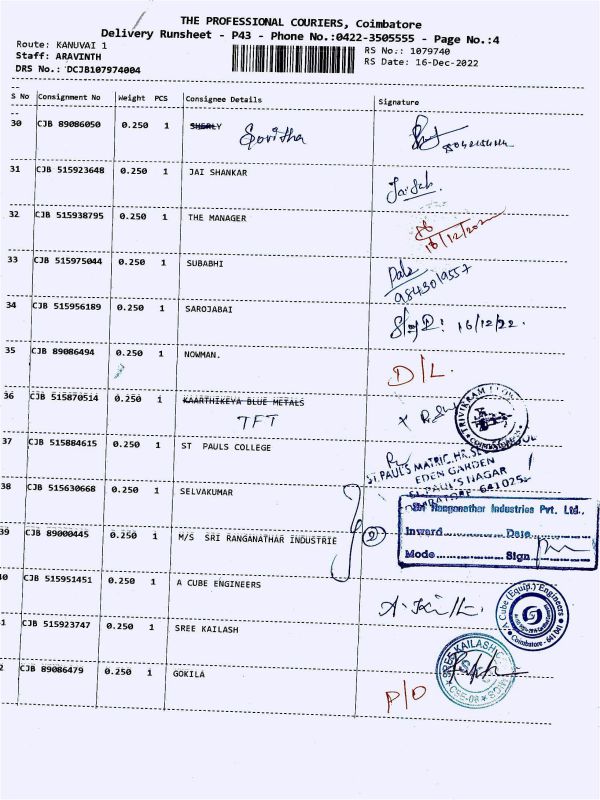 THE PROFESSIONAL COURIERS, Coimbatore
Delivery Runsheet - P43 - Phone No.:0422-3505555 - Page No.:4
Route: KANUVAI 1
RS No.: 1079740
Staff: ARAVINTH
RS Date: 16-Dec-2022
DRS No.: DCJB107974004
S No Consignment No Weight PCS Consignee Details Signature
30 CJB 89086050 0.250 1 SHERLY
31 CJB 515923648 0.250 1 JAI SHANKAR
32 CJB 515938795 0.250 1 THE MANAGER
16/12/202
33 CJB 515975044 0.250 1 SUBABHI
9843019557
34 CJB 515956189 0.250 1 SAROJABAI 16/12/22.
35 CJB 89086494 0.250 1 NOWMAN. D/L.
36 CJB 515870514 0.250 1 KAARTHIKEYA BLUE METALS
TFT
37 CJB 515884615 0.250 1 ST PAULS COLLEGE
ST.PAULS MATRIC.HR.SE
EDEN GARDEN
ST.PAUL'S NAGAR
641025
38 CJB 515630668 0.250 1 SELVAKUMAR
Sri Ranganathar Industries Pvt. Ltd.,
39 CJB 89000445 0.250 1 M/S SRI RANGANATHAR INDUSTRIE 2
Inward Date
Mode Sign
40 CJB 515951451 0.250 1 A CUBE ENGINEERS
A Cube (Equip.) Engineers
Coimbatore - 641 041
1 CJB 515923747 0.250 1 SREE KAILASH
SREE KAILASH
CBE-08
2 CJB 89086479 0.250 1 GOKILA P/O